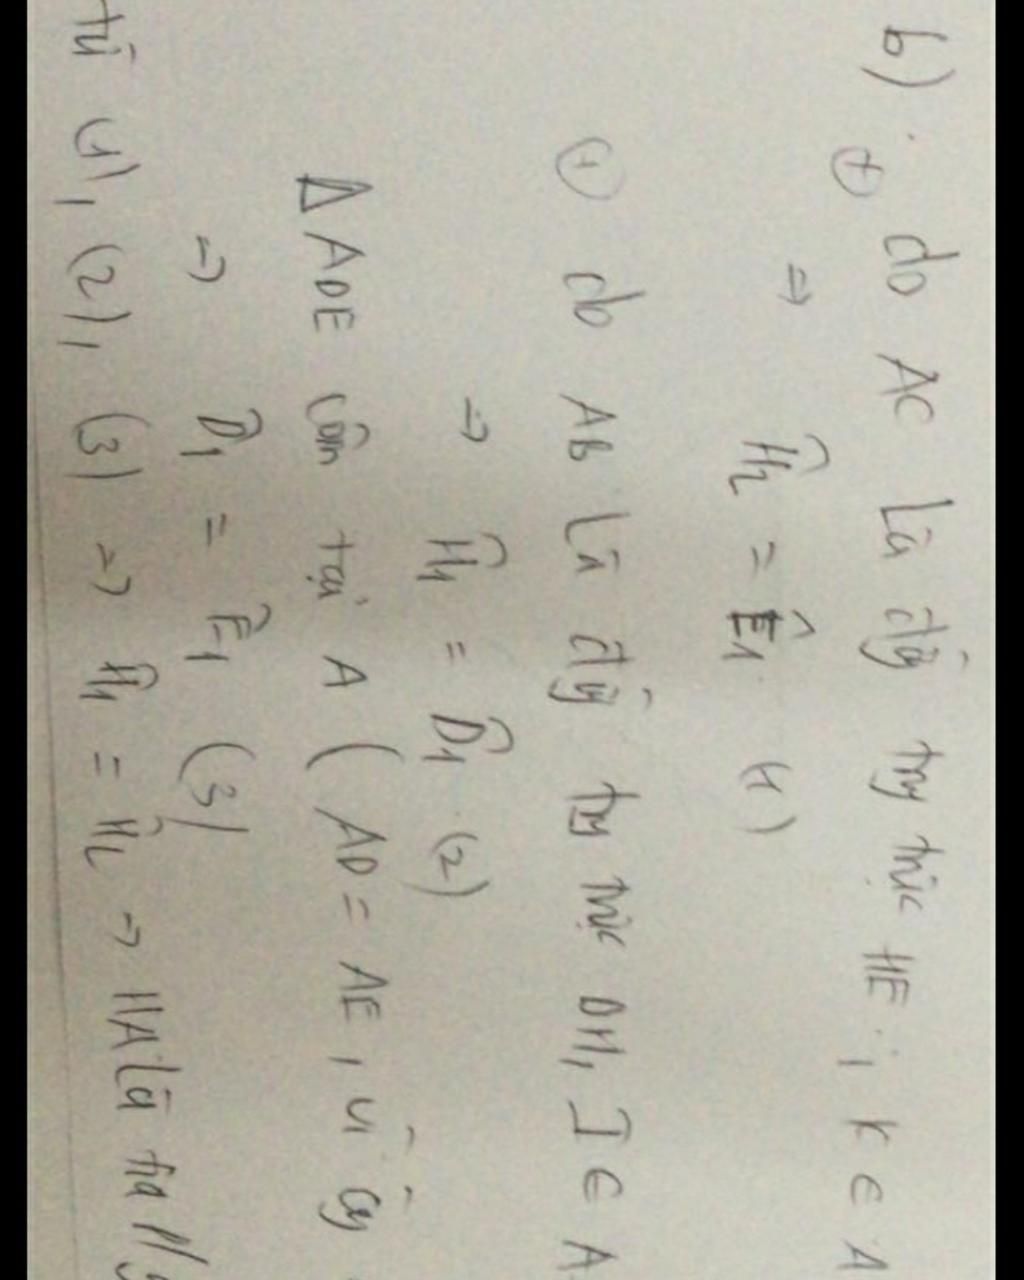 b) + do AC là đg trg trực HE; K ∈ A
=> Ĥ₂ = Ê₁ (1)
+ do AB là đg trg trực DH, I ∈ A
=> Ĥ₁ = D̂₁ (2)
Δ ADE cân tại A ( AD = AE, vì cg
=> D̂₁ = Ê₁ (3)
từ (1), (2), (3) => Ĥ₁ = Ĥ₂ -> HA là tia